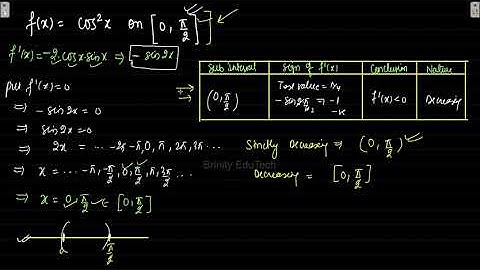 f(x) = cos²x on [0, π/2]
f'(x) = -2cosx sinx ⇒ - sin2x
put f'(x) = 0
⇒ - sin2x = 0
⇒ sin2x = 0
⇒ 2x = ... -2π -π, 0, π, 2π, 3π ...
⇒ x = ... -π, -π/2, 0, π/2, π, 3π/2 ...
⇒ x = 0, π/2 ∈ [0, π/2]
0 π/2
Sub Interval Sign of f'(x) Conclusion Nature
(0, π/2) Test value = π/4 f'(x) < 0 Decreasing
- sin2π/2 = -1
-ve
Strictly Decreasing ⇒ (0, π/2)
Decreasing = [0, π/2]
Brinity EduTech